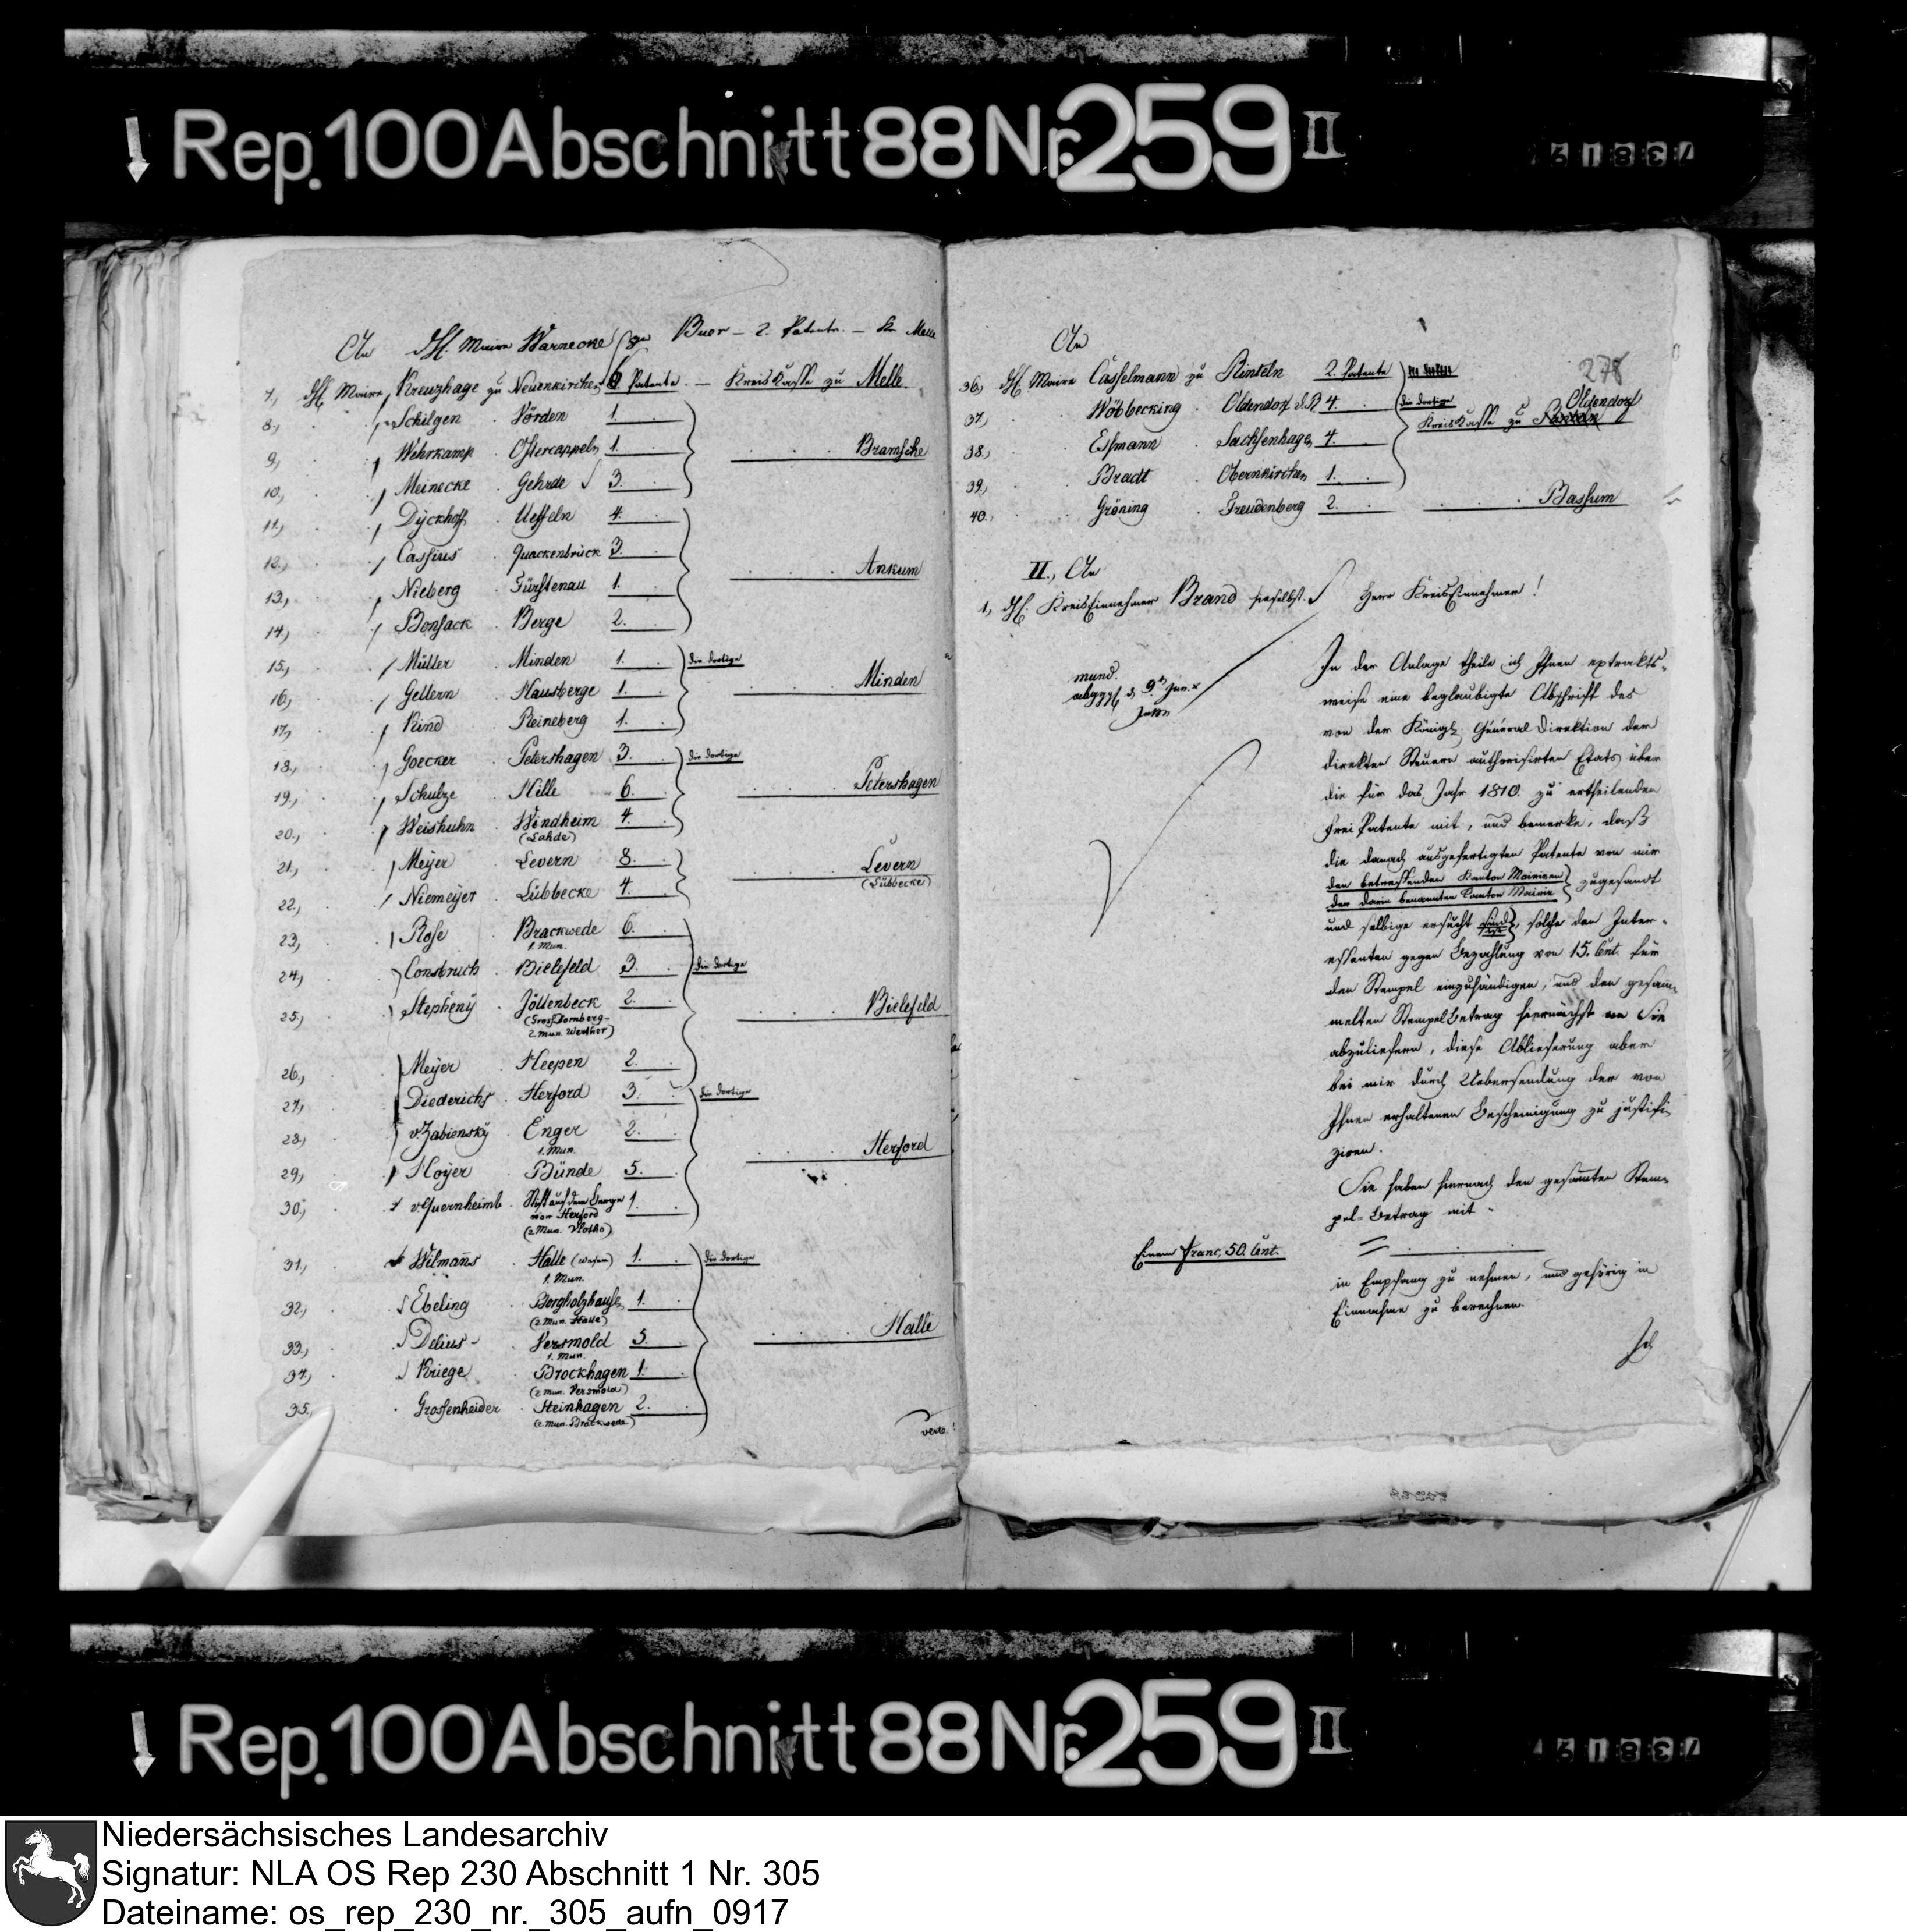 Rep. 100 Abschnitt 88 Nr. 259 II
738191
An
H. Maire Warnecke zu Buer – 2. Patente. – Kr. Melle
7, H. Maire Kreuzhage zu Neuenkirchen 6. Patente. – KreisKasse zu Melle
8., Schilgen Vörden 1.
9, Wehrkamp Ostercappeln 1. Bramsche
10, Meinecke Gehrde 3.
11, Dyckhoff Ueffeln 4.
12., Cassius Quackenbrück 3.
Ankum
13, Nieberg Fürstenau 1.
14, Bonsack Berge 2.
15, Müller Minden 1. die dortige
16, Gellern Hausberge 1. Minden
17, Rind Reineberg 1.
18., Goecker Petershagen 3. die dortige
19, Schulze Hille 6. Petershagen
20., Weishuhn Windheim 4.
(Lahde)
21, Meyer Levern 8. Levern
(Lübbecke)
22., Niemeyer Lübbecke 4.
23, Rose Brackwede 6.
1. Mun.
24, Consbruch Bielefeld 3. die dortige
25, Stepheny Jöllenbeck 2. Bielefeld
(Gross Dornberg-
2. mun. Werther)
26., Meyer Heepen 2.
27, Diederichs Herford 3. die dortige
28, v. Zabiensky Enger 2.
1. Mun. Herford
29, Hoyer Bünde 5.
30., v. Quernheimb Stift auf dem Berge 1.
vor Herford
(2 Mun. Vlotho)
31, Wilmans Halle 1. die dortige
1. Mun.
32, Ebeling Borgholzhausen 1.
(2. Mun. Halle)
33, Delius Versmold 5. Halle
1. Mun.
34, Kriege Brockhagen 1.
(2 mun. Versmold)
35., Grossenheider Steinhagen 2.
(2 mun. Brackwede)
verte
278
An
36, H. Maire Casselmann zu Rinteln 2. Patente
37. Wöbbecking Oldendorf 4. die dortige KreisKasse zu Rinteln Oldendorf
38, Essmann Sachsenhagen 4.
39, Bradt Obernkirchen 1.
40. Gröning Freudenberg 2. Bassum
II., An
1, H. KreisEinnehmer Brand hieselbst. Herr KreisEinnehmer!
mund.
In der Anlage theile ich Ihnen extrakts-
weise eine beglaubigte Abschrift des
von der Königl. General Direktion der
direkten Steuern authorisirten Etats über
die für das Jahr 1810. zu ertheilenden
Frei Patente mit, und bemerke, daß
die danach ausgefertigten Patente von mir
den betreffenden Kanton Mairieen
der darin benannten Canton Mairie zugesandt
und selbige ersucht sind, solche den Inter-
essenten gegen Bezahlung von 15. Cent. für
den Stempel einzuhändigen, und den gesam-
melten StempelBetrag hiernächst an Sie
abzuliefern, diese Ablieferung aber
bei mir durch Uebersendung der von
Ihnen erhaltenen Bescheinigung zu justifi-
ziren.
Sie haben hiernach den gesammten Stem-
pel-Betrag mit
Einem Franc, 50. Cent.
in Empfang zu nehmen, und gehörig in
Einnahme zu berechnen.
Ich
Rep. 100 Abschnitt 88 Nr. 259 II
738191
Niedersächsisches Landesarchiv
Signatur: NLA OS Rep 230 Abschnitt 1 Nr. 305
Dateiname: os_rep_230_nr._305_aufn_0917